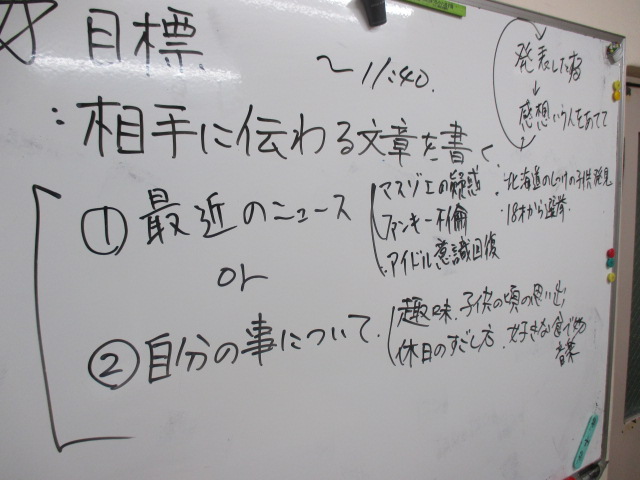 ☆目標
〜11:40.
:相手に伝わる文章を書く
① 最近のニュース
マスゾエの疑惑
ファンキー不倫
・アイドル意識回復
・北海道のしつけの子供発見
・18才から選挙
or
② 自分の事について.
趣味.子供の頃の思い出
休日のすごし方.好きな食べ物
音楽
発表した後
↓
感想いう人をあてて